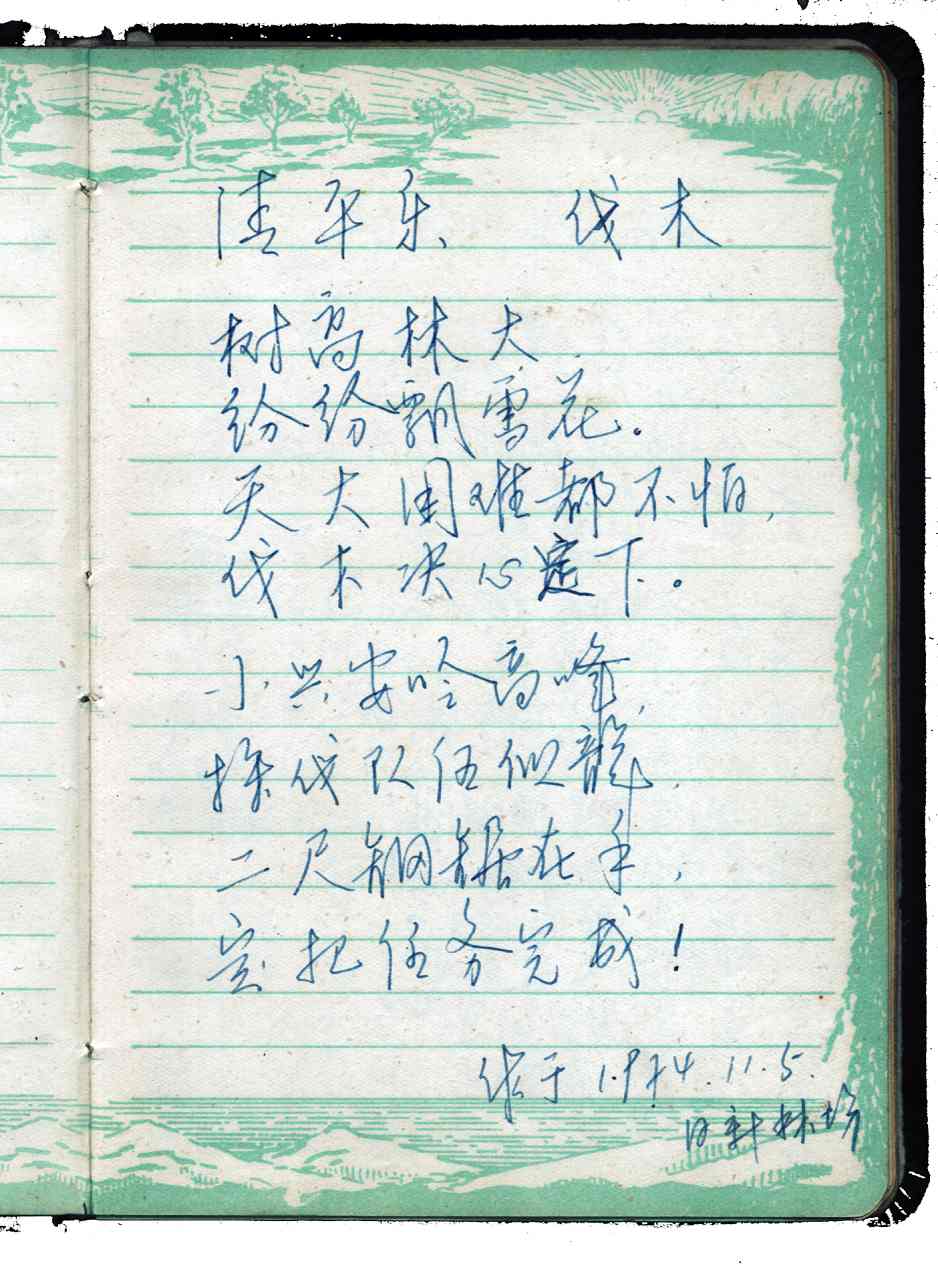 清平乐 伐木
树高林大
纷纷飘雪花。
天大困难都不怕,
伐木决心定下。
小兴安岭高峰,
採伐队伍似龍,
二尺钢锯在手,
定把任务完成!
作于1974.11.5.
日新林场